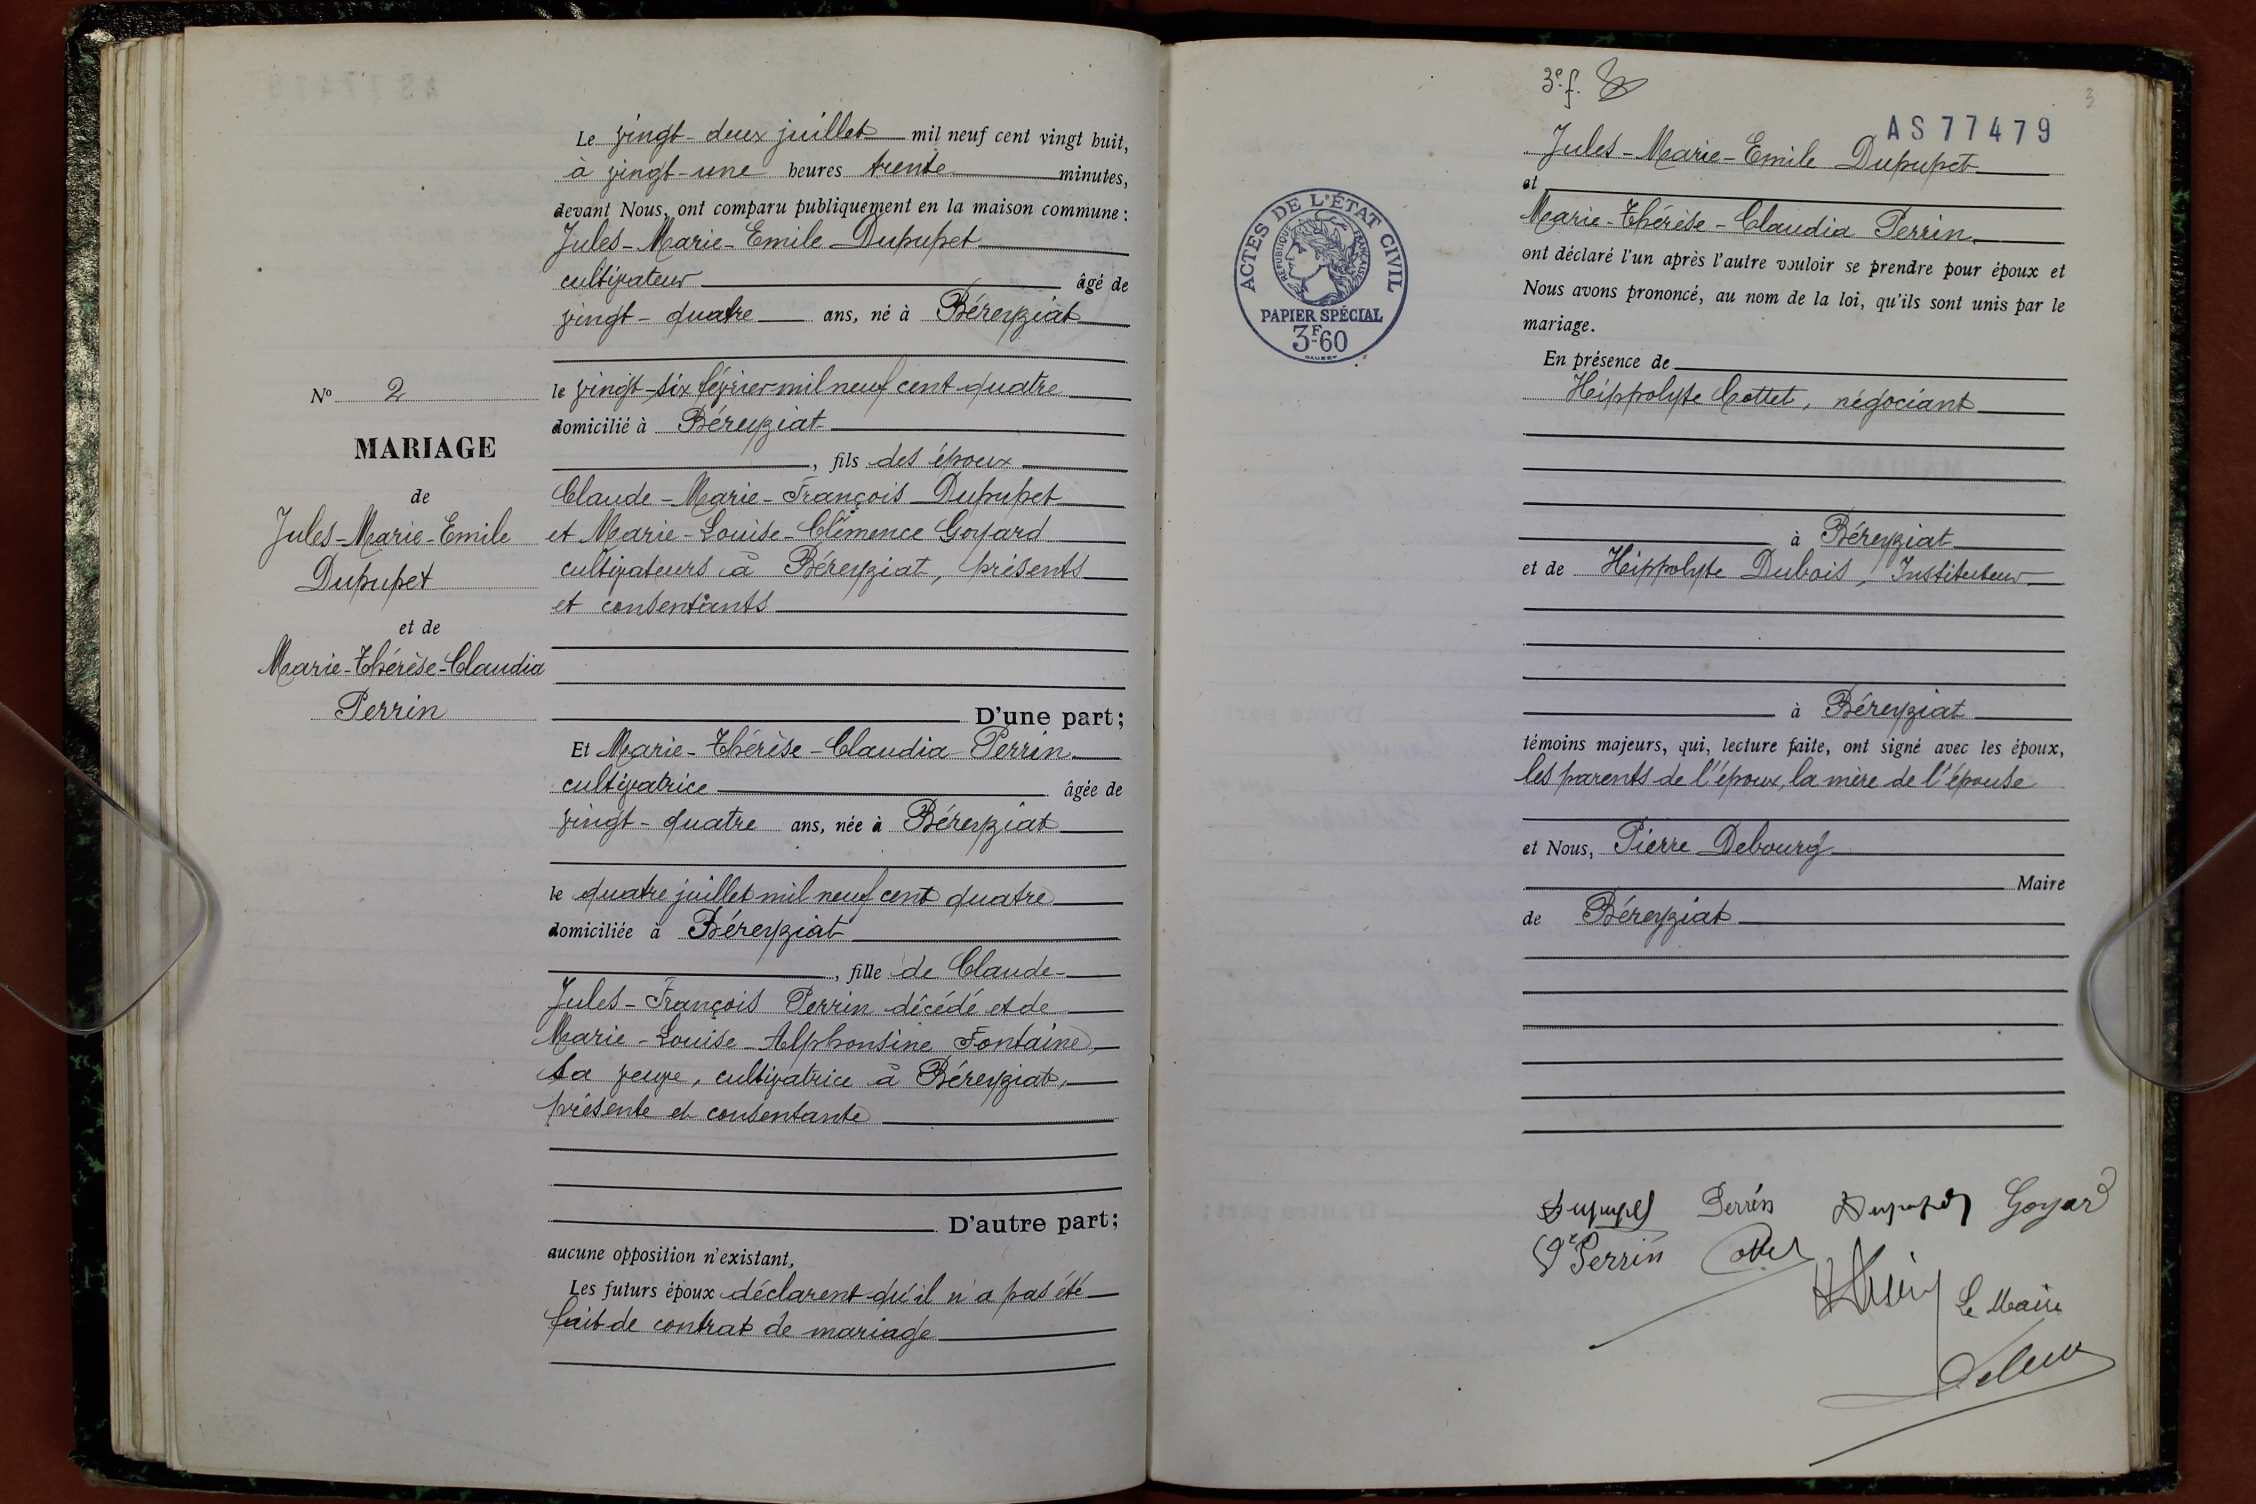 Le vingt-deux juillet mil neuf cent vingt huit,
à vingt-une heures trente minutes,
devant Nous, ont comparu publiquement en la maison commune :
Jules-Marie-Emile Dupupet
cultivateur âgé de
vingt-quatre ans, né à Béreyziat
le vingt-six février mil neuf cent quatre
domicilié à Béreyziat
, fils des époux
Claude-Marie-François Dupupet
et Marie-Louise-Clémence Goyard
cultivateurs à Béreyziat, présents
et consentants
D'une part;
Et Marie-Thérèse-Claudia Perrin
cultivatrice âgée de
vingt-quatre ans, née à Béreyziat
le quatre juillet mil neuf cent quatre
domiciliée à Béreyziat
, fille de Claude-
Jules-François Perrin décédé et de
Marie-Louise-Alphonsine Fontaine,
sa veuve, cultivatrice à Béreyziat,
présente et consentante
D'autre part;
aucune opposition n'existant,
Les futurs époux déclarent qu'il n'a pas été
fait de contrat de mariage
N° 2
MARIAGE
de
Jules-Marie-Emile
Dupupet
et de
Marie-Thérèse-Claudia
Perrin
3e f.
3
AS 77479
Jules-Marie-Emile Dupupet
et
Marie-Thérèse-Claudia Perrin
ont déclaré l'un après l'autre vouloir se prendre pour époux et
Nous avons prononcé, au nom de la loi, qu'ils sont unis par le
mariage.
En présence de
Hippolyte Cottet, négociant
à Béreyziat
et de Hippolyte Dubois, Instituteur
à Béreyziat
témoins majeurs, qui, lecture faite, ont signé avec les époux,
les parents de l'époux, la mère de l'épouse
et Nous, Pierre Debourg
Maire
de Béreyziat
ACTES DE L'ÉTAT CIVIL
RÉPUBLIQUE FRANÇAISE
PAPIER SPÉCIAL
3F60
Dupupet Perrin Dupupet Goyard
Ve Perrin Cottet
Le Maire